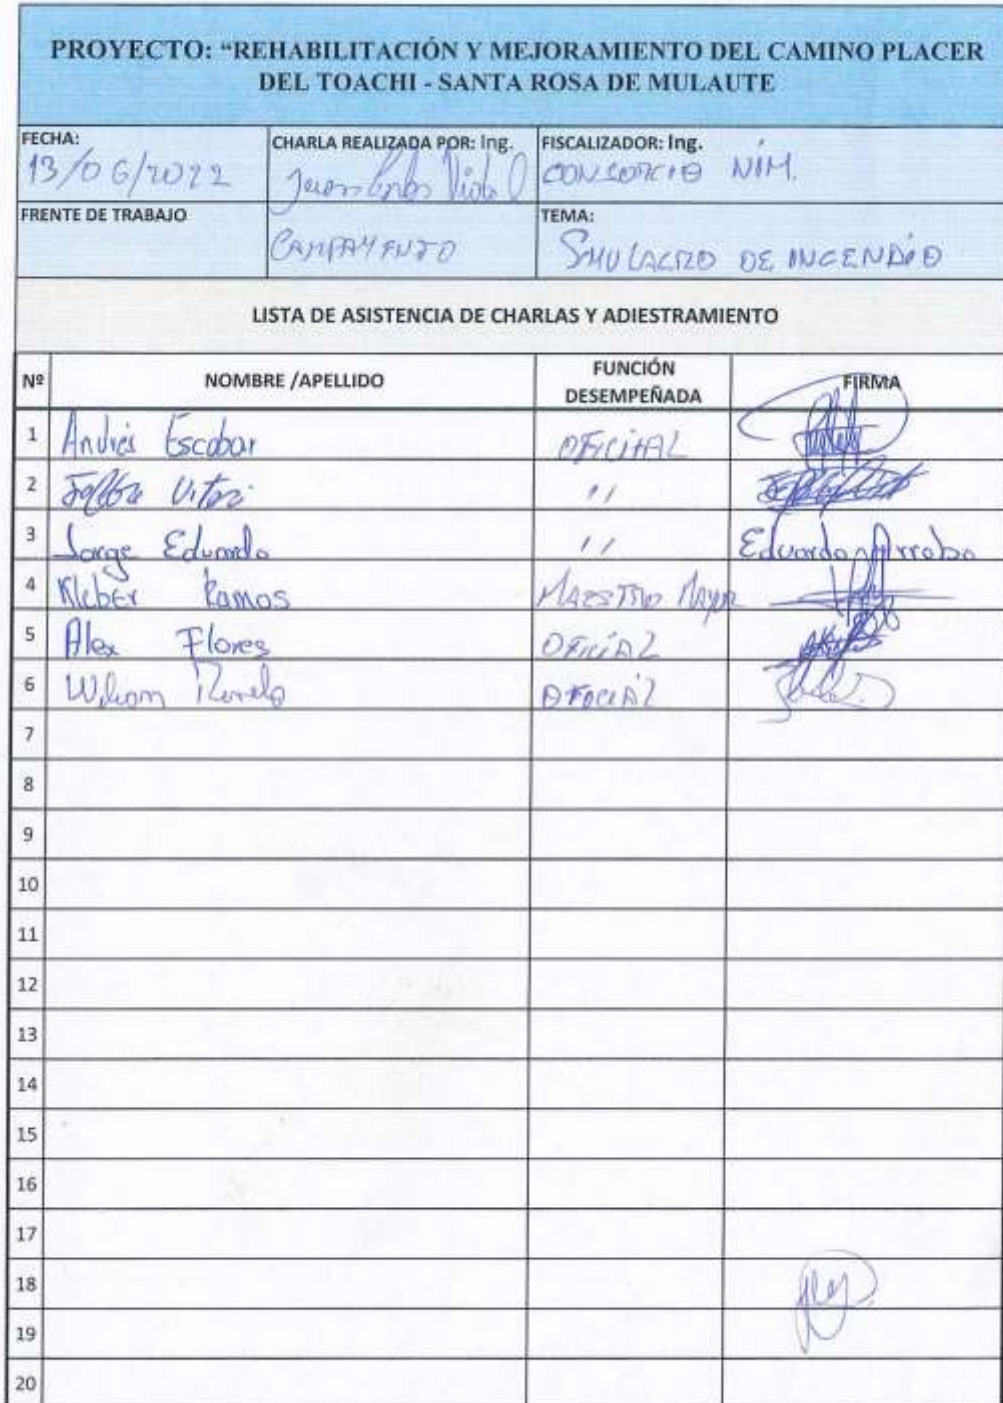 PROYECTO: “REHABILITACIÓN Y MEJORAMIENTO DEL CAMINO PLACER
DEL TOACHI - SANTA ROSA DE MULAUTE
FECHA:
13/06/2022
CHARLA REALIZADA POR: Ing.
Juan Carlos Vidal
FISCALIZADOR: Ing.
CONSORCIO NIM.
FRENTE DE TRABAJO
CAMPAMENTO
TEMA:
SMULACRO DE INCENDIO
LISTA DE ASISTENCIA DE CHARLAS Y ADIESTRAMIENTO
Nº NOMBRE /APELLIDO FUNCIÓN DESEMPEÑADA FIRMA
1 Andrés Escobar OFICIAL
2 "
3 Jorge Eduardo " Eduardo Arrobo
4 Kleber Ramos MAESTRO MAYOR
5 Alex Flores OFICIAL
6 OFOCIAL
7
8
9
10
11
12
13
14
15
16
17
18
19
20